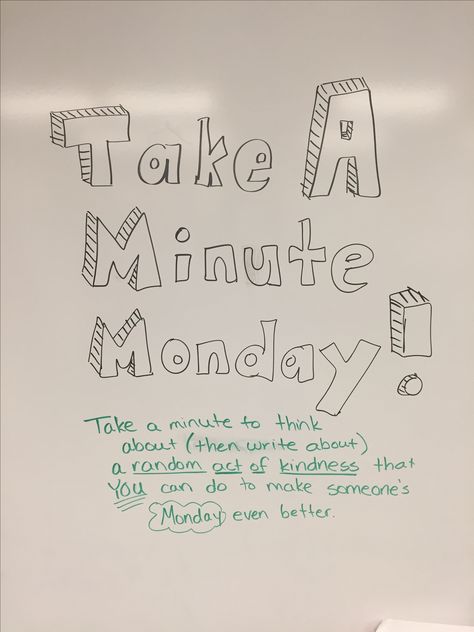 Take A
Minute
Monday!
Take a minute to think
about (then write about)
a random act of kindness that
YOU can do to make someone's
Monday even better.